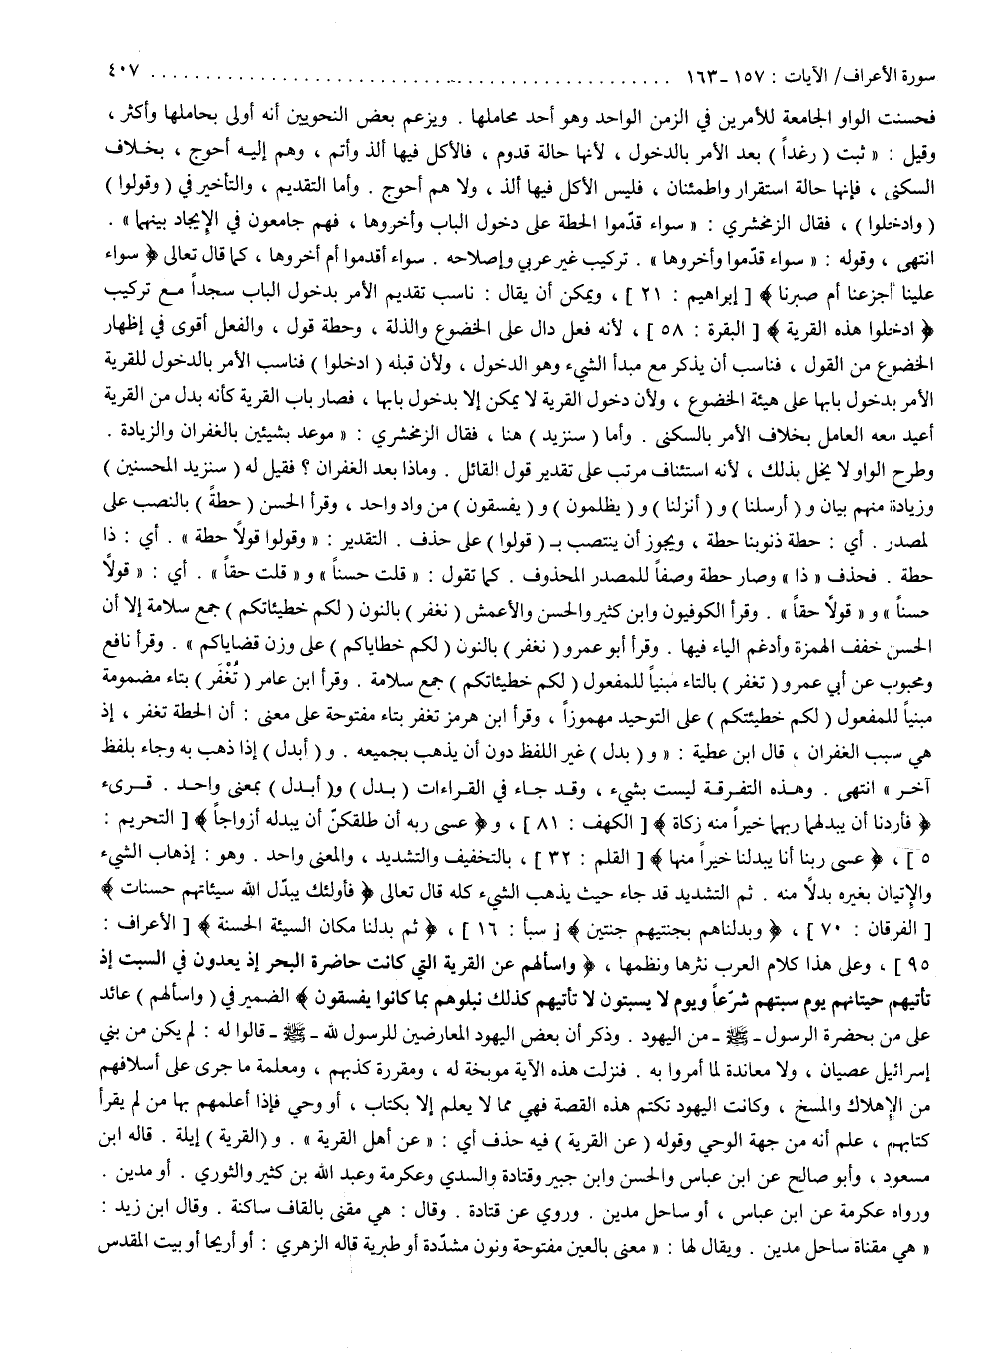 سورة الأعراف/ الآيات : ١٥٧ ـ ١٦٣ ........................................................ ٤٠٧
فحسنت الواو الجامعة للأمرين في الزمن الواحد وهو أحد محاملها . ويزعم بعض النحويين أنه أولى بحاملها وأكثر ،
وقيل : « ثبت ( رغداً ) بعد الأمر بالدخول ، لأنها حالة قدوم ، فالأكل فيها ألذ وأتم ، وهم إليه أحوج ، بخلاف
السكنى ، فإنها حالة استقرار واطمئنان ، فليس الأكل فيها ألذ ، ولا هم أحوج . وأما التقديم ، والتأخير في ( وقولوا )
( وادخلوا ) ، فقال الزمخشري : « سواء قدّموا الحطة على دخول الباب وأخروها ، فهم جامعون في الإيجاد بينهما » .
انتهى ، وقوله : « سواء قدّموا وأخروها » . تركيب غير عربي وإصلاحه . سواء أقدموا أم أخروها ، كما قال تعالى ﴿ سواء
علينا أجزعنا أم صبرنا ﴾ [ إبراهيم : ٢١ ] ، ويمكن أن يقال : ناسب تقديم الأمر بدخول الباب سجداً مع تركيب
﴿ ادخلوا هذه القرية ﴾ [ البقرة : ٥٨ ] ، لأنه فعل دال على الخضوع والذلة ، وحطة قول ، والفعل أقوى في إظهار
الخضوع من القول ، فناسب أن يذكر مع مبدأ الشيء وهو الدخول ، ولأن قبله ( ادخلوا ) فناسب الأمر بالدخول للقرية
الأمر بدخول بابها على هيئة الخضوع ، ولأن دخول القرية لا يمكن إلا بدخول بابها ، فصار باب القرية كأنه بدل من القرية
أعيد معه العامل بخلاف الأمر بالسكنى . وأما ( سنزيد ) هنا ، فقال الزمخشري : « موعد بشيئين بالغفران والزيادة .
وطرح الواو لا يخل بذلك ، لأنه استئناف مرتب على تقدير قول القائل . وماذا بعد الغفران ؟ فقيل له ( سنزيد المحسنين )
وزيادة منهم بيان و ( أرسلنا ) و ( أنزلنا ) و ( يظلمون ) و ( يفسقون ) من واد واحد ، وقرأ الحسن ( حطةً ) بالنصب على
لمصدر . أي : حطة ذنوبنا حطة ، ويجوز أن ينتصب بـ ( قولوا ) على حذف . التقدير : « وقولوا قولاً حطة » . أي : ذا
حطة . فحذف « ذا » وصار حطة وصفاً للمصدر المحذوف . كما تقول : « قلت حسناً » و « قلت حقاً » . أي : « قولاً
حسناً » و « قولاً حقاً » . وقرأ الكوفيون وابن كثير والحسن والأعمش ( نغفر ) بالنون ( لكم خطيئاتكم ) جمع سلامة إلا أن
الحسن خفف الهمزة وأدغم الياء فيها . وقرأ أبو عمرو ( نغفر ) بالنون ( لكم خطاياكم ) على وزن قضاياكم » . وقرأ نافع
ومحبوب عن أبي عمرو ( تغفر ) بالتاء مبنياً للمفعول ( لكم خطيئاتكم ) جمع سلامة . وقرأ ابن عامر ( تُغْفَر ) بتاء مضمومة
مبنياً للمفعول ( لكم خطيئتكم ) على التوحيد مهموزاً ، وقرأ ابن هرمز تغفر بتاء مفتوحة على معنى : أن الحطة تغفر ، إذ
هي سبب الغفران ، قال ابن عطية : « و ( بدل ) غير اللفظ دون أن يذهب بجميعه . و ( أبدل ) إذا ذهب به وجاء بلفظ
آخر » انتهى . وهذه التفرقة ليست بشيء ، وقد جاء في القراءات ( بدل ) و( أبدل ) بمعنى واحد . قرىء
﴿ فأردنا أن يبدلهما ربهما خيراً منه زكاة ﴾ [ الكهف : ٨١ ] ، و ﴿ عسى ربه أن طلقكنّ أن يبدله أزواجاً ﴾ [ التحريم :
٥ ] ، ﴿ عسى ربنا أنا يبدلنا خيراً منها ﴾ [ القلم : ٣٢ ] ، بالتخفيف والتشديد ، والمعنى واحد . وهو : إذهاب الشيء
والإتيان بغيره بدلاً منه . ثم التشديد قد جاء حيث يذهب الشيء كله قال تعالى ﴿ فأولئك يبدّل الله سيئاتهم حسنات ﴾
[ الفرقان : ٧٠ ] ، ﴿ وبدلناهم بجنتيهم جنتين ﴾ [ سبأ : ١٦ ] ، ﴿ ثم بدلنا مكان السيئة الحسنة ﴾ [ الأعراف :
٩٥ ] ، وعلى هذا كلام العرب نثرها ونظمها ، ﴿ واسألهم عن القرية التي كانت حاضرة البحر إذ يعدون في السبت إذ
تأتيهم حيتانهم يوم سبتهم شرّعاً ويوم لا يسبتون لا تأتيهم كذلك نبلوهم بما كانوا يفسقون ﴾ الضمير في ( واسألهم ) عائد
على من بحضرة الرسول ـ ﷺ ـ من اليهود . وذكر أن بعض اليهود المعارضين للرسول لله ـ ﷺ ـ قالوا له : لم يكن من بني
إسرائيل عصيان ، ولا معاندة لما أمروا به . فنزلت هذه الآية موبخة له ، ومقررة كذبهم ، ومعلمة ما جرى على أسلافهم
من الإهلاك والمسخ ، وكانت اليهود تكتم هذه القصة فهي مما لا يعلم إلا بكتاب ، أو وحي فإذا أعلمهم بها من لم يقرأ
كتابهم ، علم أنه من جهة الوحي وقوله ( عن القرية ) فيه حذف أي : « عن أهل القرية » . و (القرية ) إيلة . قاله ابن
مسعود ، وأبو صالح عن ابن عباس والحسن وابن جبير وقتادة والسدي وعكرمة وعبد الله بن كثير والثوري . أو مدين .
ورواه عكرمة عن ابن عباس ، أو ساحل مدين . وروي عن قتادة . وقال : هي مقنى بالقاف ساكنة . وقال ابن زيد :
« هي مقناة ساحل مدين . ويقال لها : « معنى بالعين مفتوحة ونون مشدّدة أو طبرية قاله الزهري : أو أريحا أو بيت المقدس